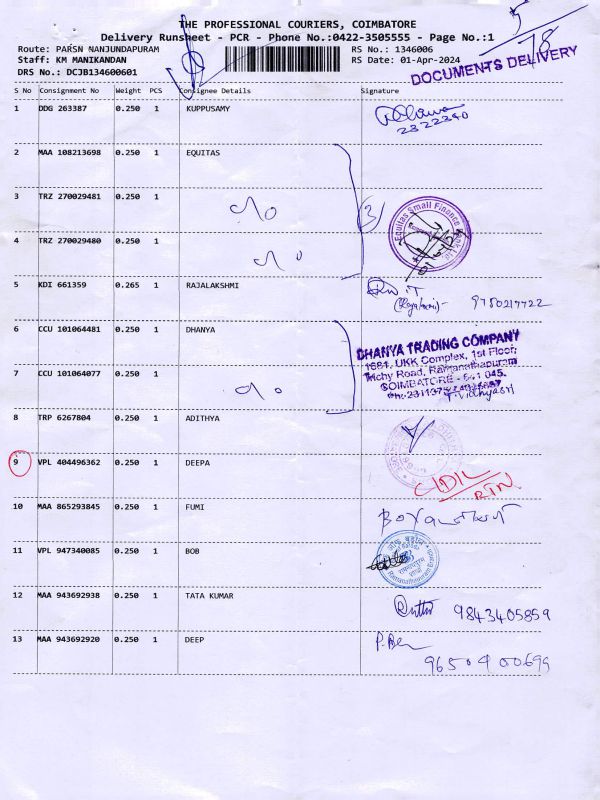 THE PROFESSIONAL COURIERS, COIMBATORE
Delivery Runsheet - PCR - Phone No.:0422-3505555 - Page No.:1
Route: PAKSN NANJUNDAPURAM
RS No.: 1346006
Staff: KM MANIKANDAN
RS Date: 01-Apr-2024
DRS No.: DCJB134600601
DOCUMENTS DELIVERY
S No Consignment No Weight PCS Consignee Details Signature
1 DDG 263387 0.250 1 KUPPUSAMY
2322240
2 MAA 108213698 0.250 1 EQUITAS
3 TRZ 270029481 0.250 1
3
Equitas Small Finance Bank Ltd
4 TRZ 270029480 0.250 1
5 KDI 661359 0.265 1 RAJALAKSHMI
9750217722
6 CCU 101064481 0.250 1 DHANYA
DHANYA TRADING COMPANY
1681, UKK Complex, 1st Floor,
Trichy Road, Ramanathapuram
COIMBATORE - 641 045.
7 CCU 101064077 0.250 1
8 TRP 6267804 0.250 1 ADITHYA
9 VPL 404496362 0.250 1 DEEPA
RTN
10 MAA 865293845 0.250 1 FUMI
11 VPL 947340085 0.250 1 BOB
Ramanathapuram Branch
12 MAA 943692938 0.250 1 TATA KUMAR
9843405859
13 MAA 943692920 0.250 1 DEEP
9650400699